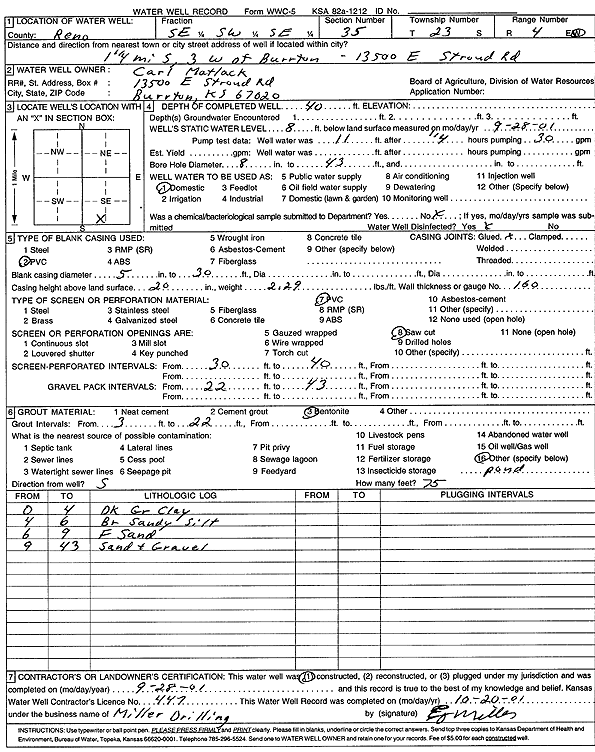 WATER WELL RECORD Form WWC-5 KSA 82a-1212 ID No.
1 LOCATION OF WATER WELL: Fraction Section Number Township Number Range Number
County: Reno SE ¼ SW ¼ SE ¼ 35 T 23 S R 4 E/W
Distance and direction from nearest town or city street address of well if located within city?
1 1/4 mi S, 3 W of Burrton - 13500 E Stroud Rd
2 WATER WELL OWNER: Carl Matlack
RR#, St. Address, Box #: 13500 E Stroud Rd Board of Agriculture, Division of Water Resources
City, State, ZIP Code : Burrton KS 67020 Application Number:
3 LOCATE WELL'S LOCATION WITH AN "X" IN SECTION BOX:
N
NW NE
W E
SW SE
X
S
1 Mile
4 DEPTH OF COMPLETED WELL 40 ft. ELEVATION:
Depth(s) Groundwater Encountered 1. ft. 2. ft. 3. ft.
WELL'S STATIC WATER LEVEL 8 ft. below land surface measured on mo/day/yr 9-28-01
Pump test data: Well water was 11 ft. after 1/4 hours pumping 30 gpm
Est. Yield gpm: Well water was ft. after hours pumping gpm
Bore Hole Diameter 8 in. to 43 ft., and in. to ft.
WELL WATER TO BE USED AS: 5 Public water supply 8 Air conditioning 11 Injection well
1 Domestic 3 Feedlot 6 Oil field water supply 9 Dewatering 12 Other (Specify below)
2 Irrigation 4 Industrial 7 Domestic (lawn & garden) 10 Monitoring well
Was a chemical/bacteriological sample submitted to Department? Yes No X ; If yes, mo/day/yrs sample was submitted Water Well Disinfected? Yes X No
5 TYPE OF BLANK CASING USED: 5 Wrought iron 8 Concrete tile CASING JOINTS: Glued X Clamped
1 Steel 3 RMP (SR) 6 Asbestos-Cement 9 Other (specify below) Welded
2 PVC 4 ABS 7 Fiberglass Threaded
Blank casing diameter 5 in. to 30 ft., Dia in. to ft., Dia in. to ft.
Casing height above land surface 20 in., weight 2.29 lbs./ft. Wall thickness or gauge No. 160
TYPE OF SCREEN OR PERFORATION MATERIAL: 7 PVC 10 Asbestos-cement
1 Steel 3 Stainless steel 5 Fiberglass 8 RMP (SR) 11 Other (specify)
2 Brass 4 Galvanized steel 6 Concrete tile 9 ABS 12 None used (open hole)
SCREEN OR PERFORATION OPENINGS ARE: 5 Gauzed wrapped 8 Saw cut 11 None (open hole)
1 Continuous slot 3 Mill slot 6 Wire wrapped 9 Drilled holes
2 Louvered shutter 4 Key punched 7 Torch cut 10 Other (specify) ft.
SCREEN-PERFORATED INTERVALS: From 30 ft. to 40 ft., From ft. to ft.
From ft. to ft., From ft. to ft.
GRAVEL PACK INTERVALS: From 22 ft. to 43 ft., From ft. to ft.
From ft. to ft., From ft. to ft.
6 GROUT MATERIAL: 1 Neat cement 2 Cement grout 3 Bentonite 4 Other
Grout Intervals: From 3 ft. to 22 ft., From ft. to ft., From ft. to ft.
What is the nearest source of possible contamination: 10 Livestock pens 14 Abandoned water well
1 Septic tank 4 Lateral lines 7 Pit privy 11 Fuel storage 15 Oil well/Gas well
2 Sewer lines 5 Cess pool 8 Sewage lagoon 12 Fertilizer storage 16 Other (specify below)
3 Watertight sewer lines 6 Seepage pit 9 Feedyard 13 Insecticide storage pond
Direction from well? S How many feet? 75
FROM TO LITHOLOGIC LOG FROM TO PLUGGING INTERVALS
0 4 DK Gr Clay
4 6 Br Sandy Silt
6 9 F Sand
9 43 Sand + Gravel
7 CONTRACTOR'S OR LANDOWNER'S CERTIFICATION: This water well was (1) constructed, (2) reconstructed, or (3) plugged under my jurisdiction and was
completed on (mo/day/year) 9-28-01 and this record is true to the best of my knowledge and belief. Kansas
Water Well Contractor's Licence No. 447 This Water Well Record was completed on (mo/day/yr) 10-20-01
under the business name of Miller Drilling by (signature)
INSTRUCTIONS: Use typewriter or ball point pen. PLEASE PRESS FIRMLY and PRINT clearly. Please fill in blanks, underline or circle the correct answers. Send top three copies to Kansas Department of Health and
Environment, Bureau of Water, Topeka, Kansas 66620-0001. Telephone 785-296-5524. Send one to WATER WELL OWNER and retain one for your records. Fee of $5.00 for each constructed well.